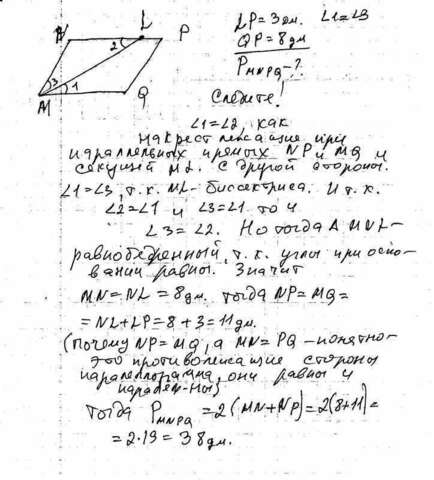 N L P
2
3 1
M Q
LP = 3 дм. ∠1=∠3
QP = 8 дм
P MNPQ - ?
Следите!
∠1=∠2, как
накрест лежащие при
параллельных прямых NP и MQ и
секущей ML. С другой стороны.
∠1=∠3, т.к. ML - биссектриса. И т.к.
∠2=∠1 и ∠3=∠1 то и
∠3=∠2. Но тогда Δ MNL-
равнобедренный, т.к. углы при осно-
вании равны. Значит
MN=NL=8дм. тогда NP=MQ=
=NL+LP=8+3=11дм.
(Почему NP=MQ, а MN=PQ -понятно-
это противолежащие стороны
параллелограмма, они равны и
паралел-ны)
Тогда P MNPQ =2(MN+NP)=2(8+11)=
=2·19=38дм.